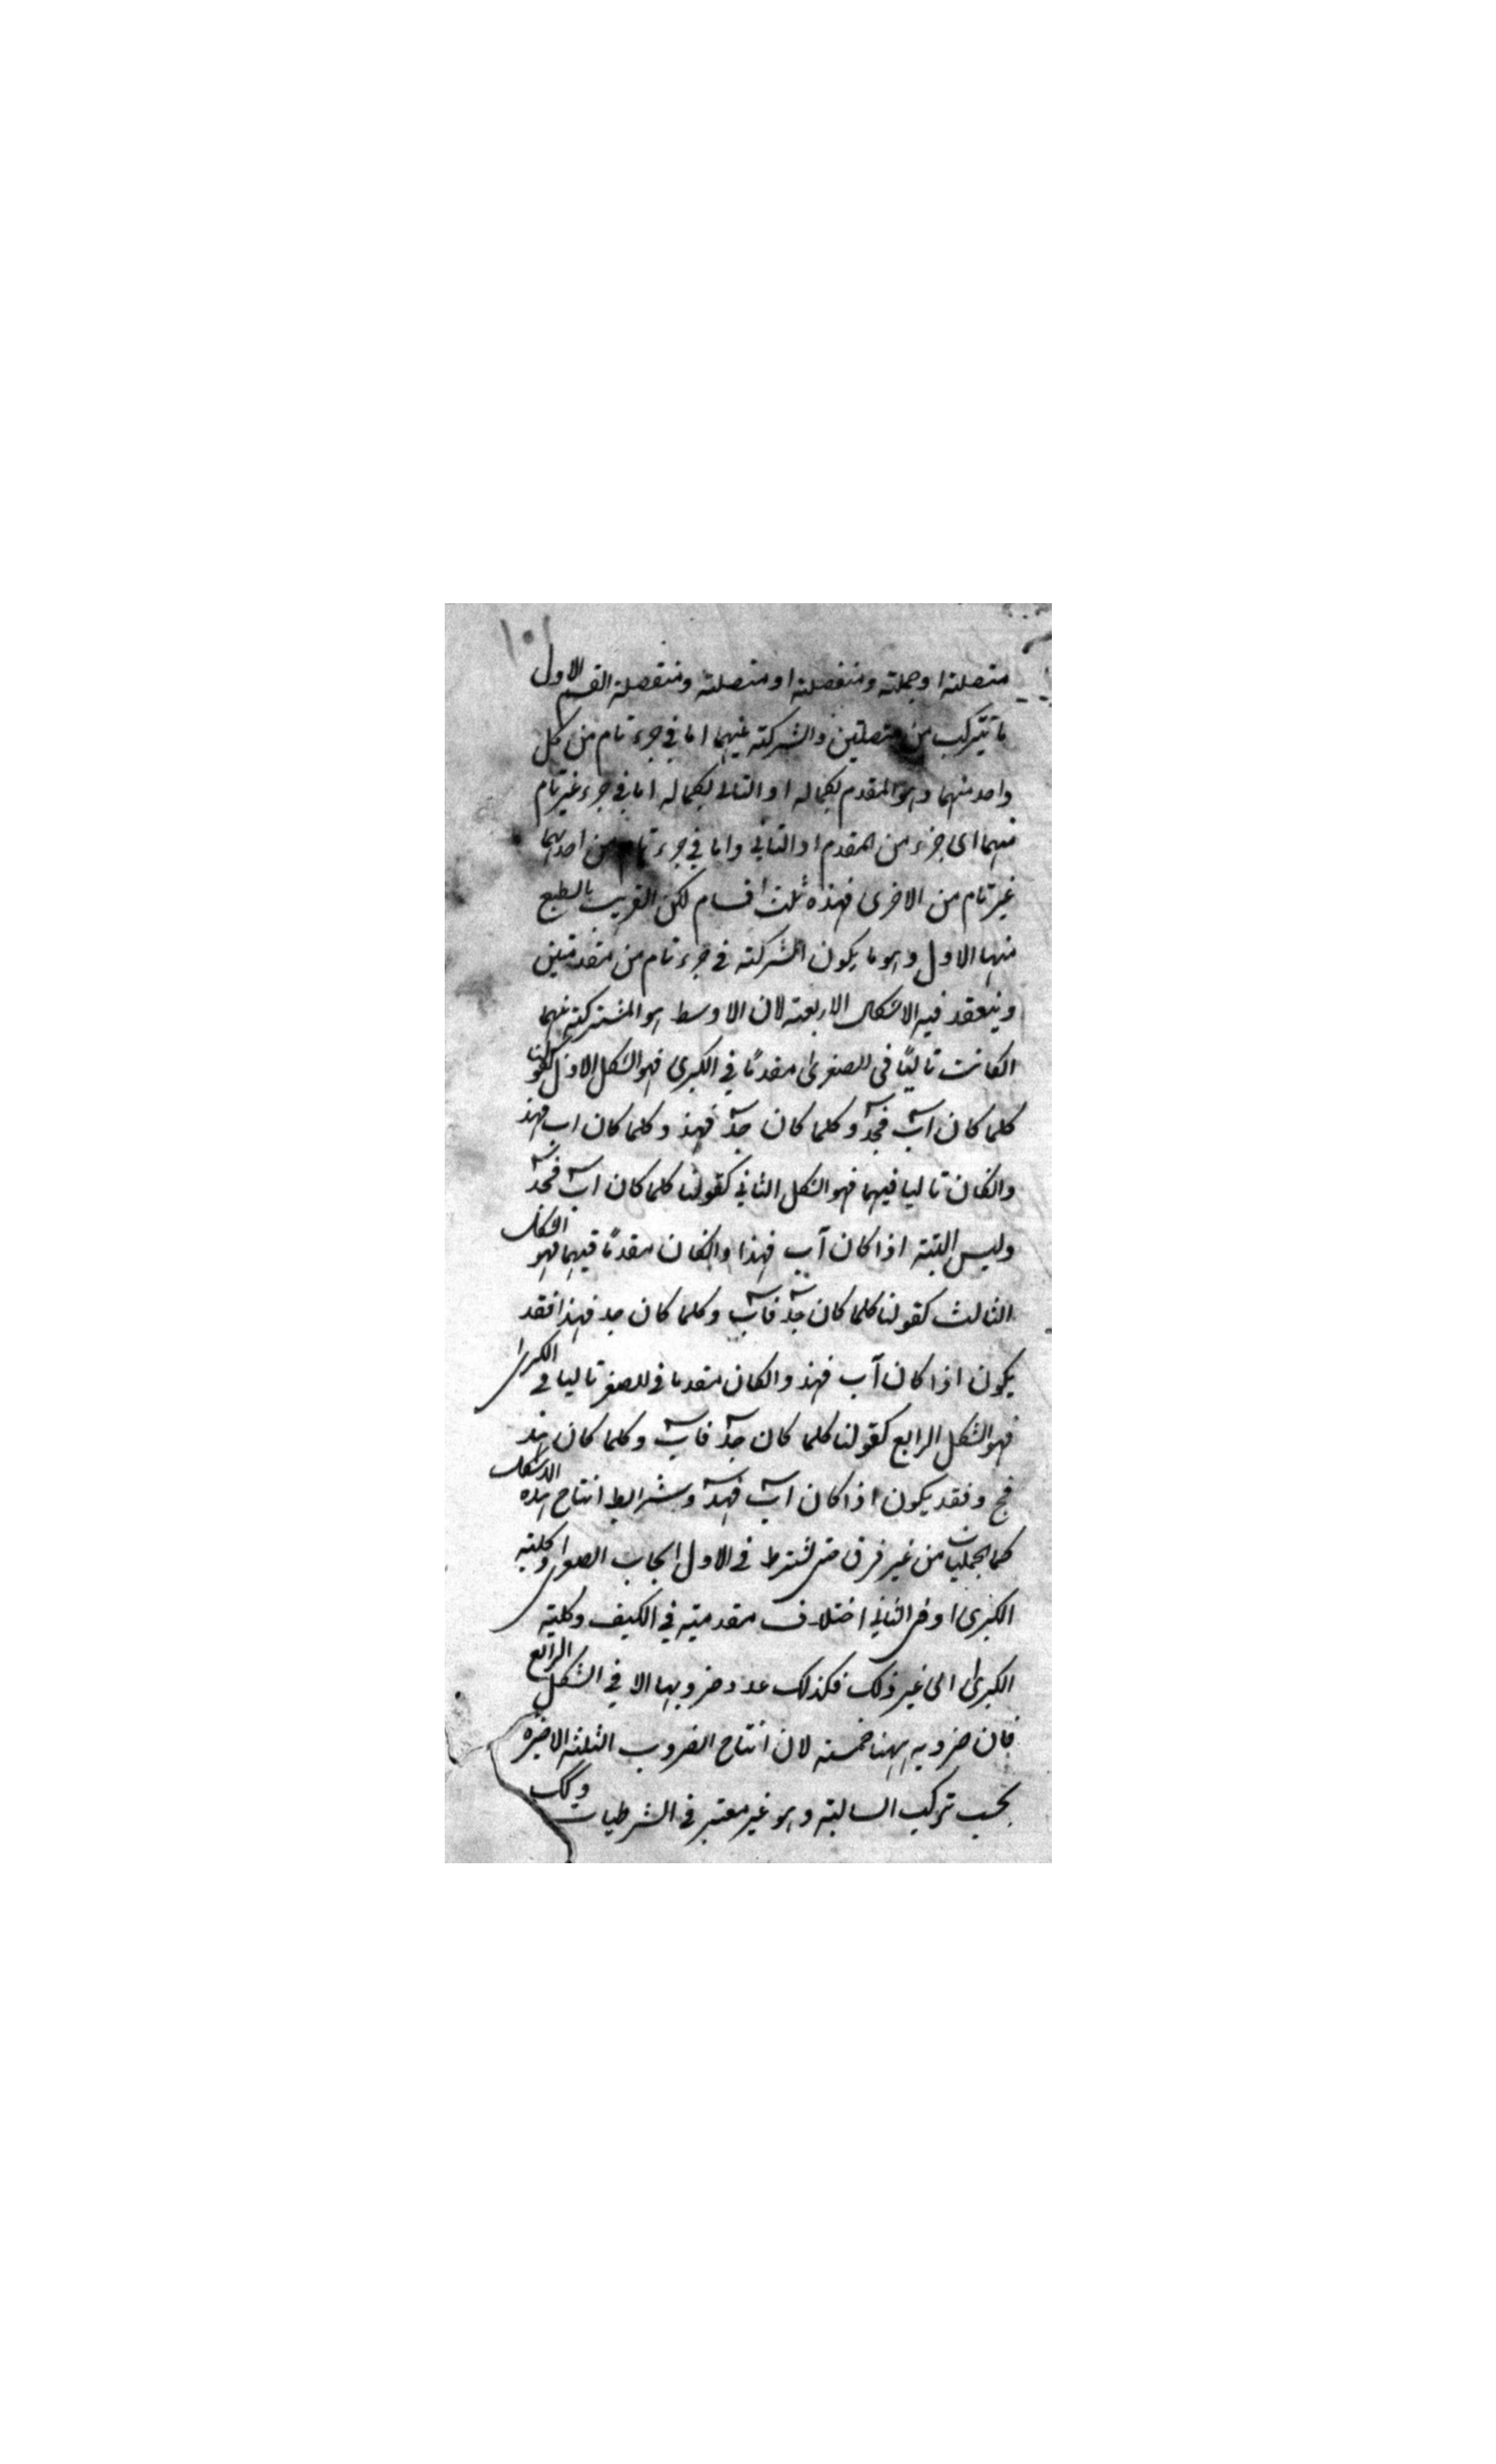 ١٠١
متصلة او حملية ومنفصلة او متصلة ومنفصلة القسم الاول
ما يتركب من متصلتين والشركة فيهما اما في جزء تام من كل
واحد منهما وهو المقدم بكماله او التالى بكماله اما في جزء غير تام
منهما اى جزء من المقدم او التالي واما في جزء تام من احدهما
غير تام من الاخرى فهذه ثلث اقسام لكن القريب بالطبع
منها الاول وهو ما يكون الشركة في جزء تام من مقدمتين
وينعقد فيه الاشكال الاربعة لان الاوسط هو المشتركة فيهما
انكانت تاليًا فى الصغرى مقدمًا في الكبرى فهو الشكل الاول كقولنا
كلما كان اب فجد وكلما كان جد فهذ وكلما كان اب فهذ
وانكان تاليا فيهما فهو الشكل الثاني كقولنا كلما كان اب فجد
وليس البتة اذا كان آب فهذا وانكان مقدمًا فيهما فهو الشكل
الثالث كقولنا كلما كان جد فاب وكلما كان جد فهذا فقد
يكون اذا كان آب فهذ وانكان مقدما في الصغر تاليا في الكبرى
فهو الشكل الرابع كقولنا كلما كان جد فاب وكلما كان هذ
فج د فقد يكون اذا كان اب فهذ وشرايط انتاج هذه الاشكال
كما بحمليات من غير فرق حتى يشترط في الاول ايجاب الصغرى وكلية
الكبرى وفى الثاني اختلاف مقدمتيه في الكيف وكلية
الكبرى الى غير ذلك فكذلك عدد ضروبها الا في الشكل الرابع
فان ضروبه ههنا خمسة لان انتاج الضروب الثلثة الاخيرة
بحسب تركيب السالبة وهو غير معتبر في الشرطيات